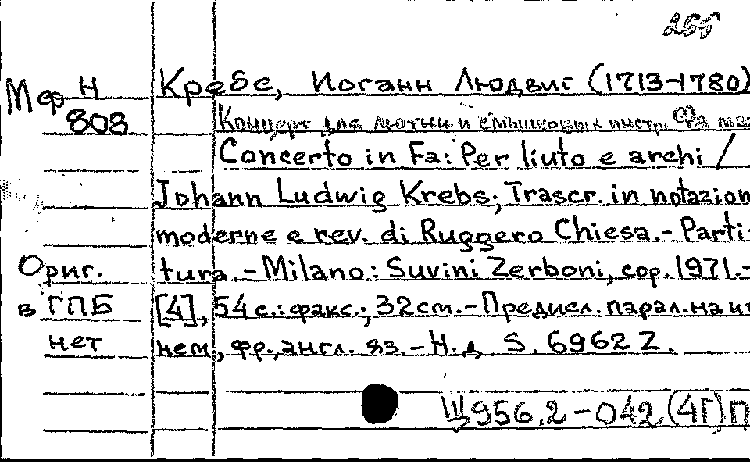 255
Мф Н Кребс, Иоганн Людвиг (1713-1780)
808 Концерт для лютни и смычковых инстр. Фа маж
Concerto in Fa: Per liuto e archi /
Johann Ludwig Krebs; Trascr. in notazion
moderne e rev. di Ruggero Chiesa.- Parti-
Ориг. tura.-Milano: Suvini Zerboni, cop. 1971.-
в ГПБ [4], 54 с.: факс.; 32см.-Предисл. парал. на ит
нет нем, фр., англ. яз.-Н.д. S. 6962 Z.
Щ956.2-042.(4Г)П